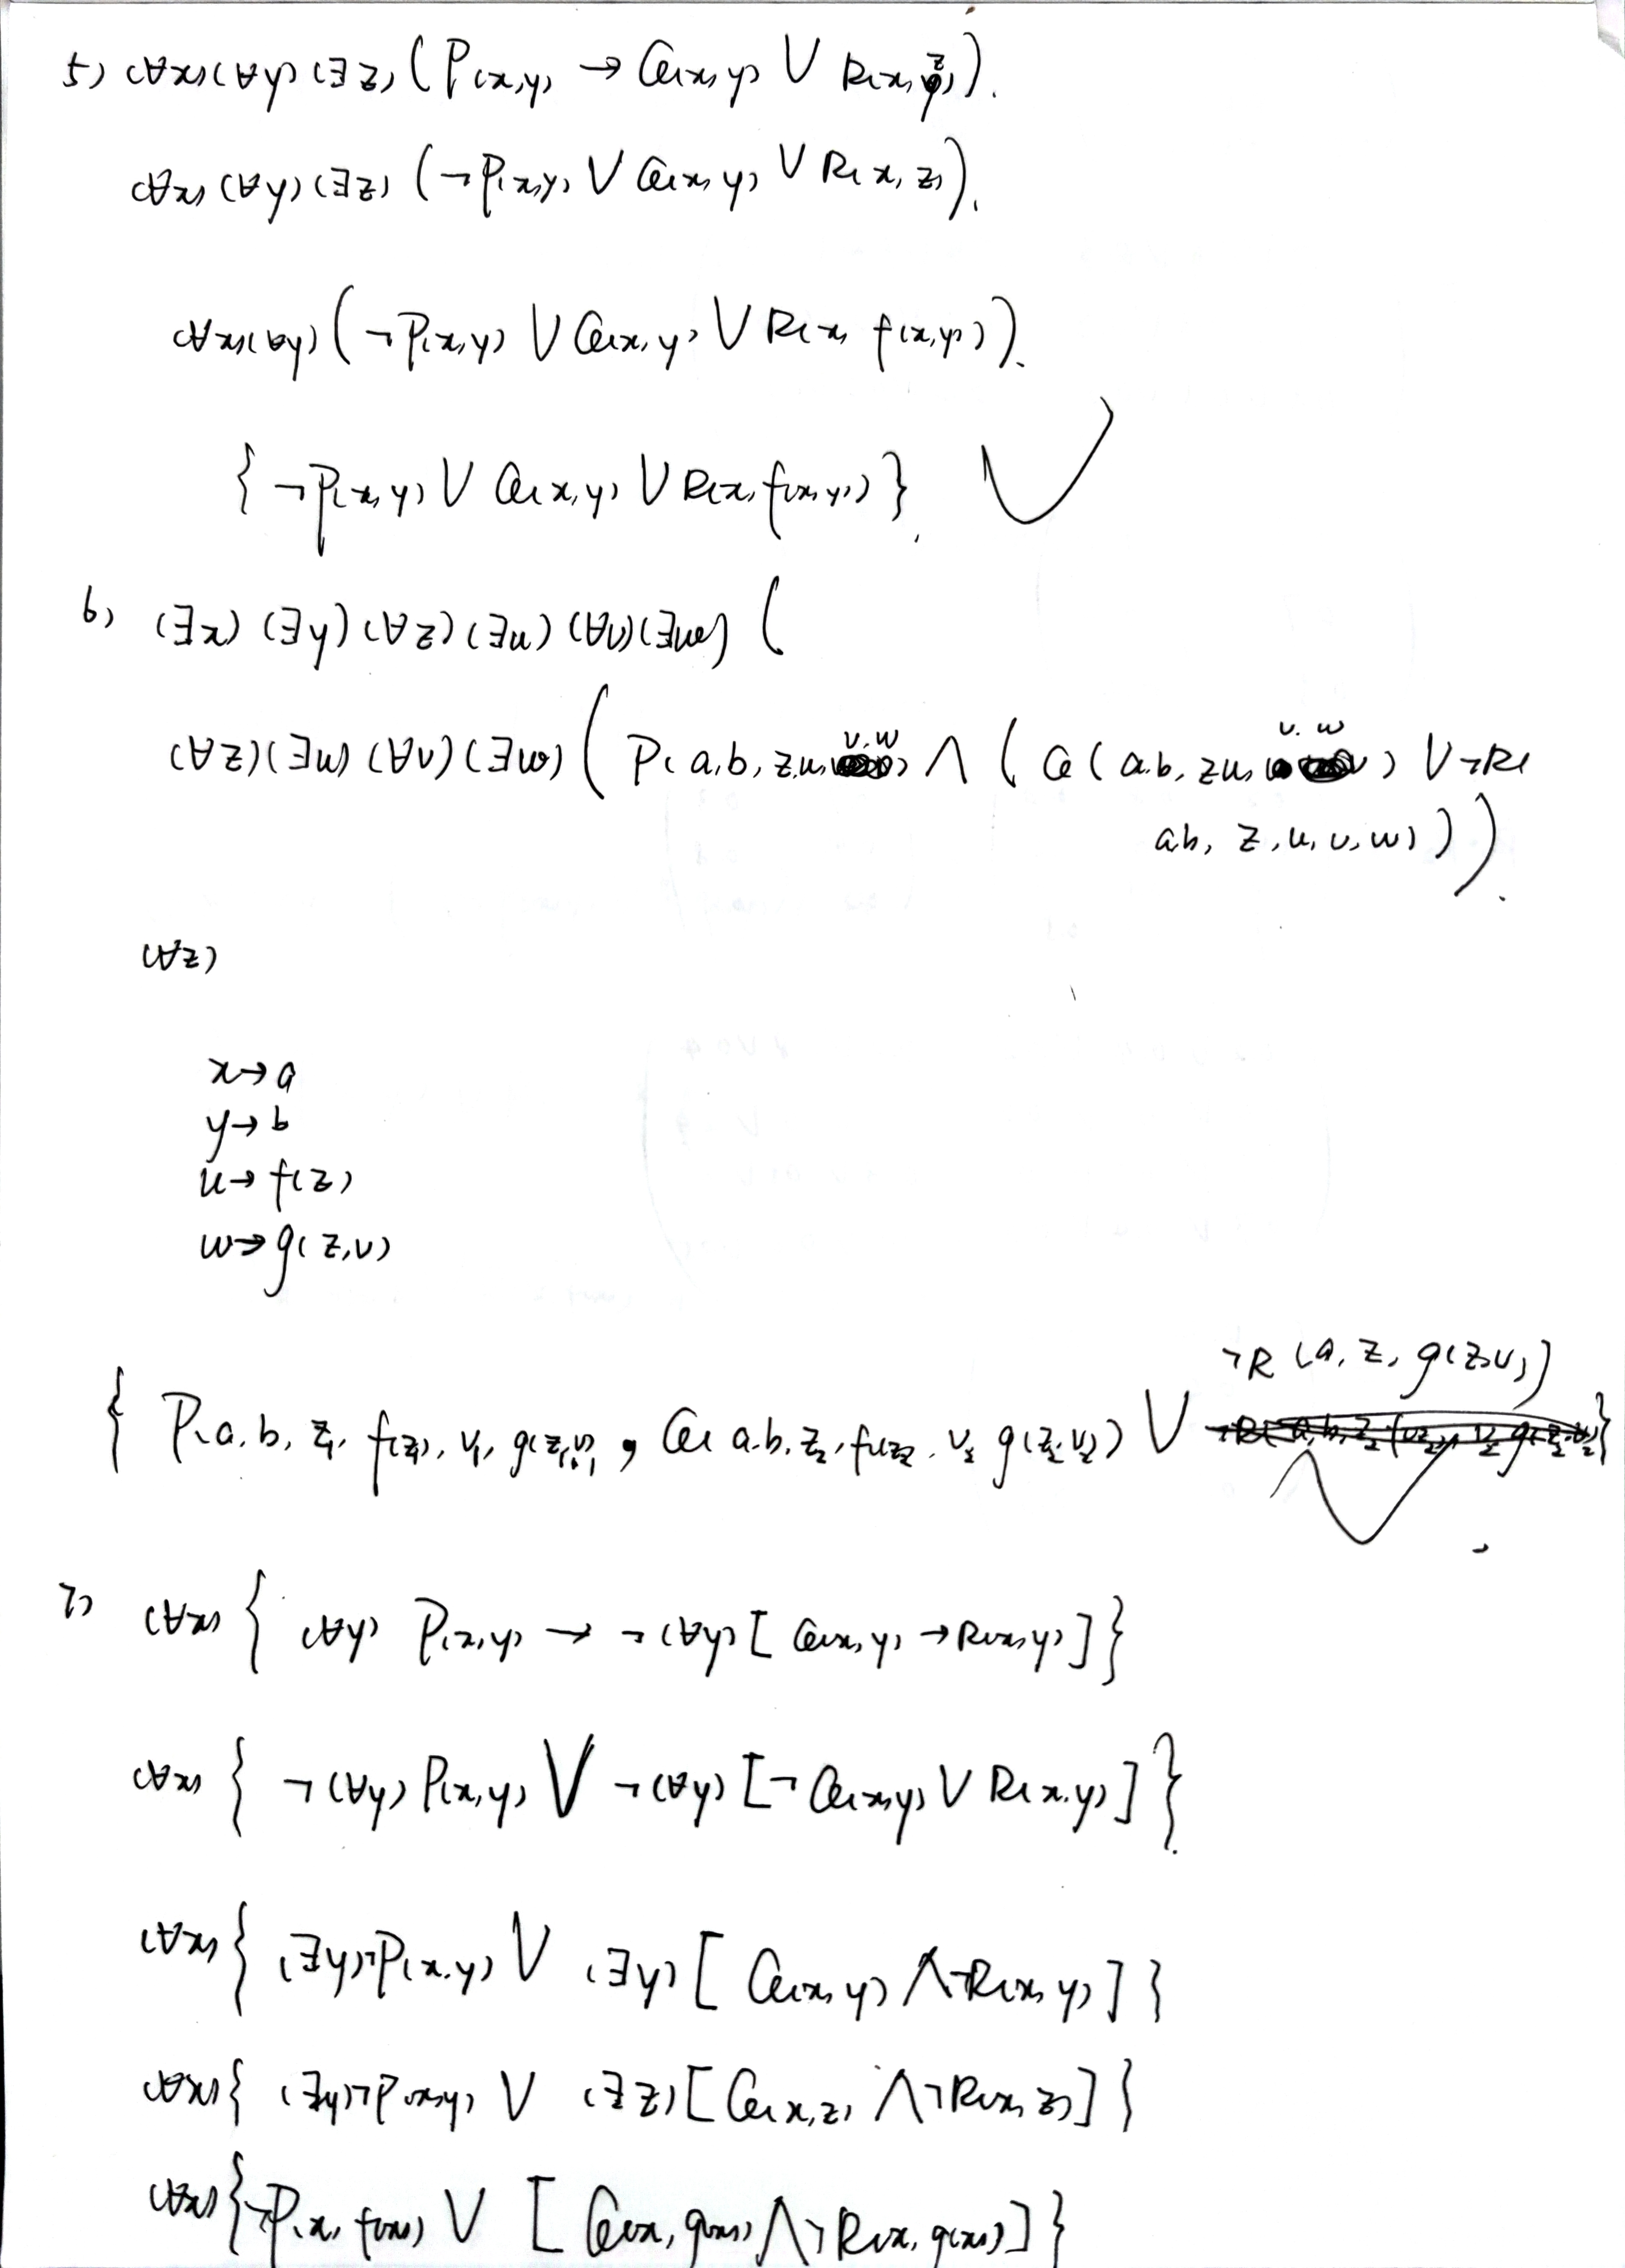 5) (∀x)(∀y)(∃z)(P(x,y) → Q(x,y) ∨ R(x,z)).
(∀x)(∀y)(∃z)(¬P(x,y) ∨ Q(x,y) ∨ R(x,z)).
(∀x)(∀y)(¬P(x,y) ∨ Q(x,y) ∨ R(x, f(x,y))).
{¬P(x,y) ∨ Q(x,y) ∨ R(x, f(x,y))}.
6) (∃x)(∃y)(∀z)(∃u)(∀v)(∃w)(
(∀z)(∃u)(∀v)(∃w)(P(a,b,z,u,v,w) ∧ (Q(a,b,z,u,v,w) ∨ ¬R(
a,b,z,u,v,w))).
(∀z)
x→a
y→b
u→f(z)
w→g(z,v)
¬R(a,z,g(z,v))
{P(a,b,z₁,f(z₁),v₁,g(z₁,v₁), Q(a,b,z₂,f(z₂,v₂,g(z₂,v₂)) ∨ }
7) (∀x){(∀y)P(x,y) → ¬(∀y)[Q(x,y) → R(x,y)]}
(∀x){¬(∀y)P(x,y) ∨ ¬(∀y)[¬Q(x,y) ∨ R(x,y)]}.
(∀x){(∃y)¬P(x,y) ∨ (∃y)[Q(x,y) ∧ ¬R(x,y)]}
(∀x){(∃y)¬P(x,y) ∨ (∃z)[Q(x,z) ∧ ¬R(x,z)]}
(∀x){¬P(x,f(x)) ∨ [Q(x,g(x)) ∧ ¬R(x,g(x))]}